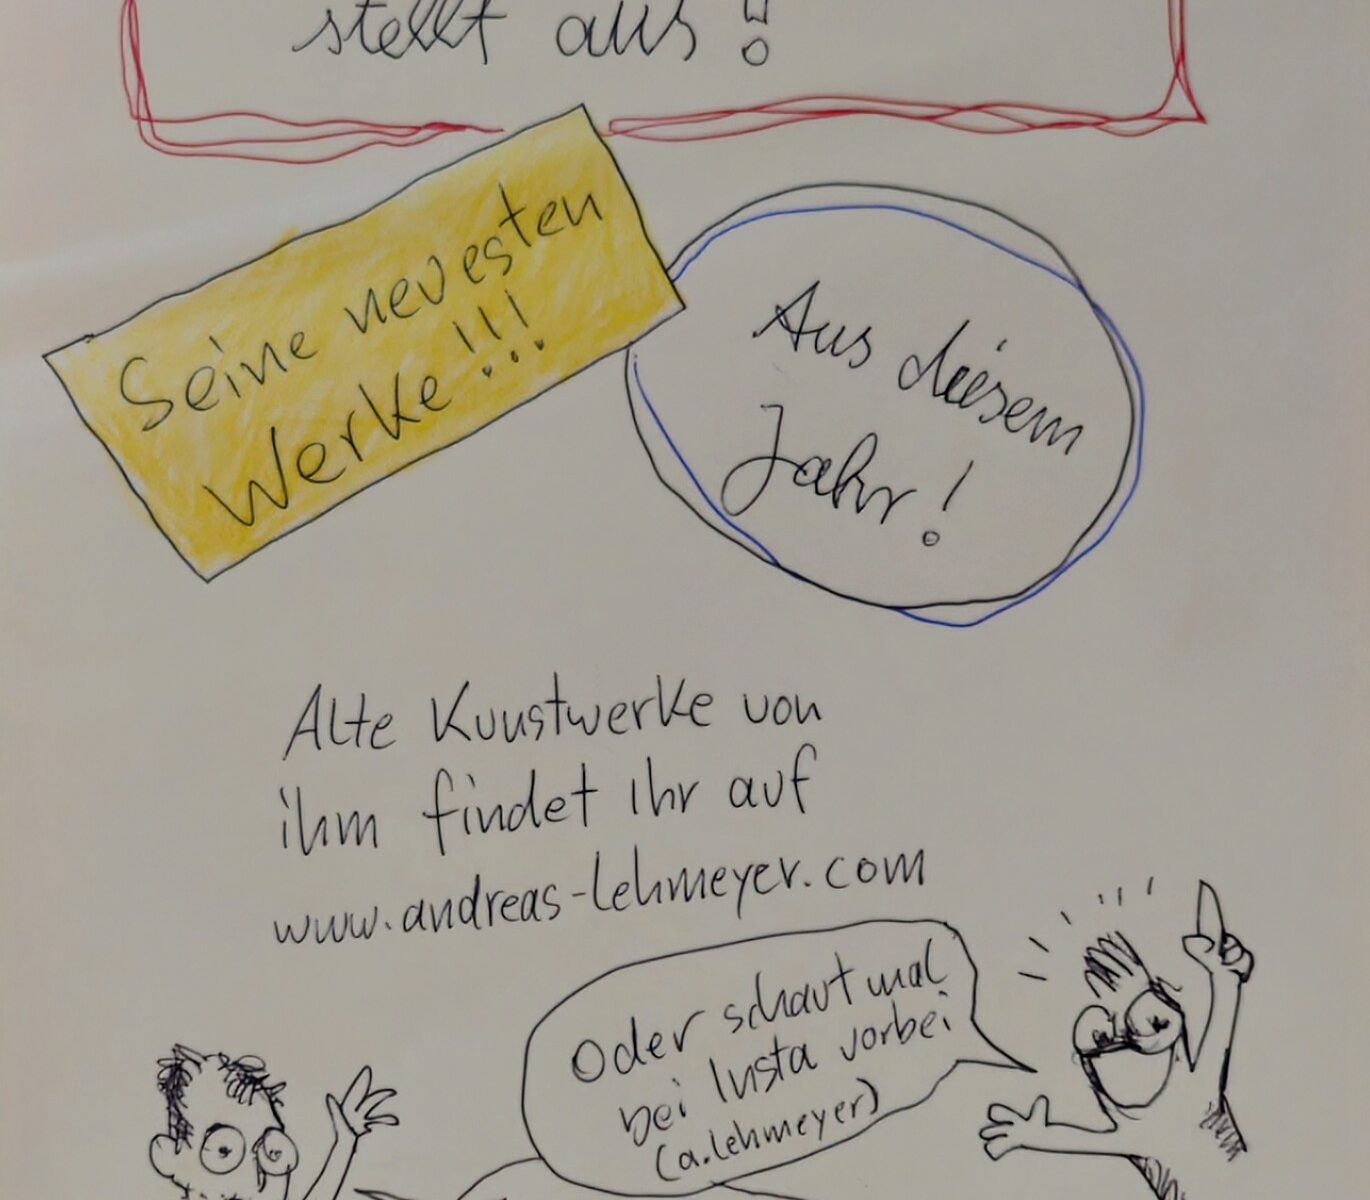 stellt aus!
Seine neuesten
Werke!!!
Aus diesem
Jahr!
Alte Kunstwerke von
ihm findet Ihr auf
www.andreas-lehmeyer.com
Oder schaut mal
bei Insta vorbei
(a.lehmeyer)